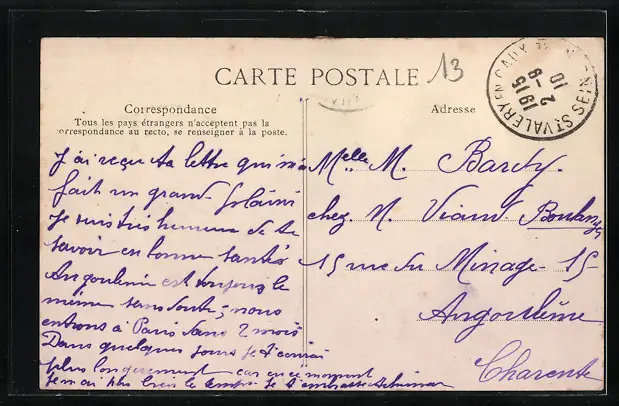 CARTE POSTALE
13
Correspondance
Tous les pays étrangers n'acceptent pas la
correspondance au recto, se renseigner à la poste.
J'ai reçu ta lettre qui m'a
fait un grand plaisir
Je suis très heureuse de te
savoir en bonne santé
Angoulême est toujours le
même sans doute; nous
entrons à Paris dans 2 mois
Dans quelques jours je t'écrirai
plus longuement car en ce moment
je n'ai plus le temps je t'embrasse
Adresse
Melle M. Bardy.
chez M. Viaud Boulanger
15 rue du Minage 15
Angoulême
Charente
ST VALERY EN CAUX SEINE
10
2 - 9
1915